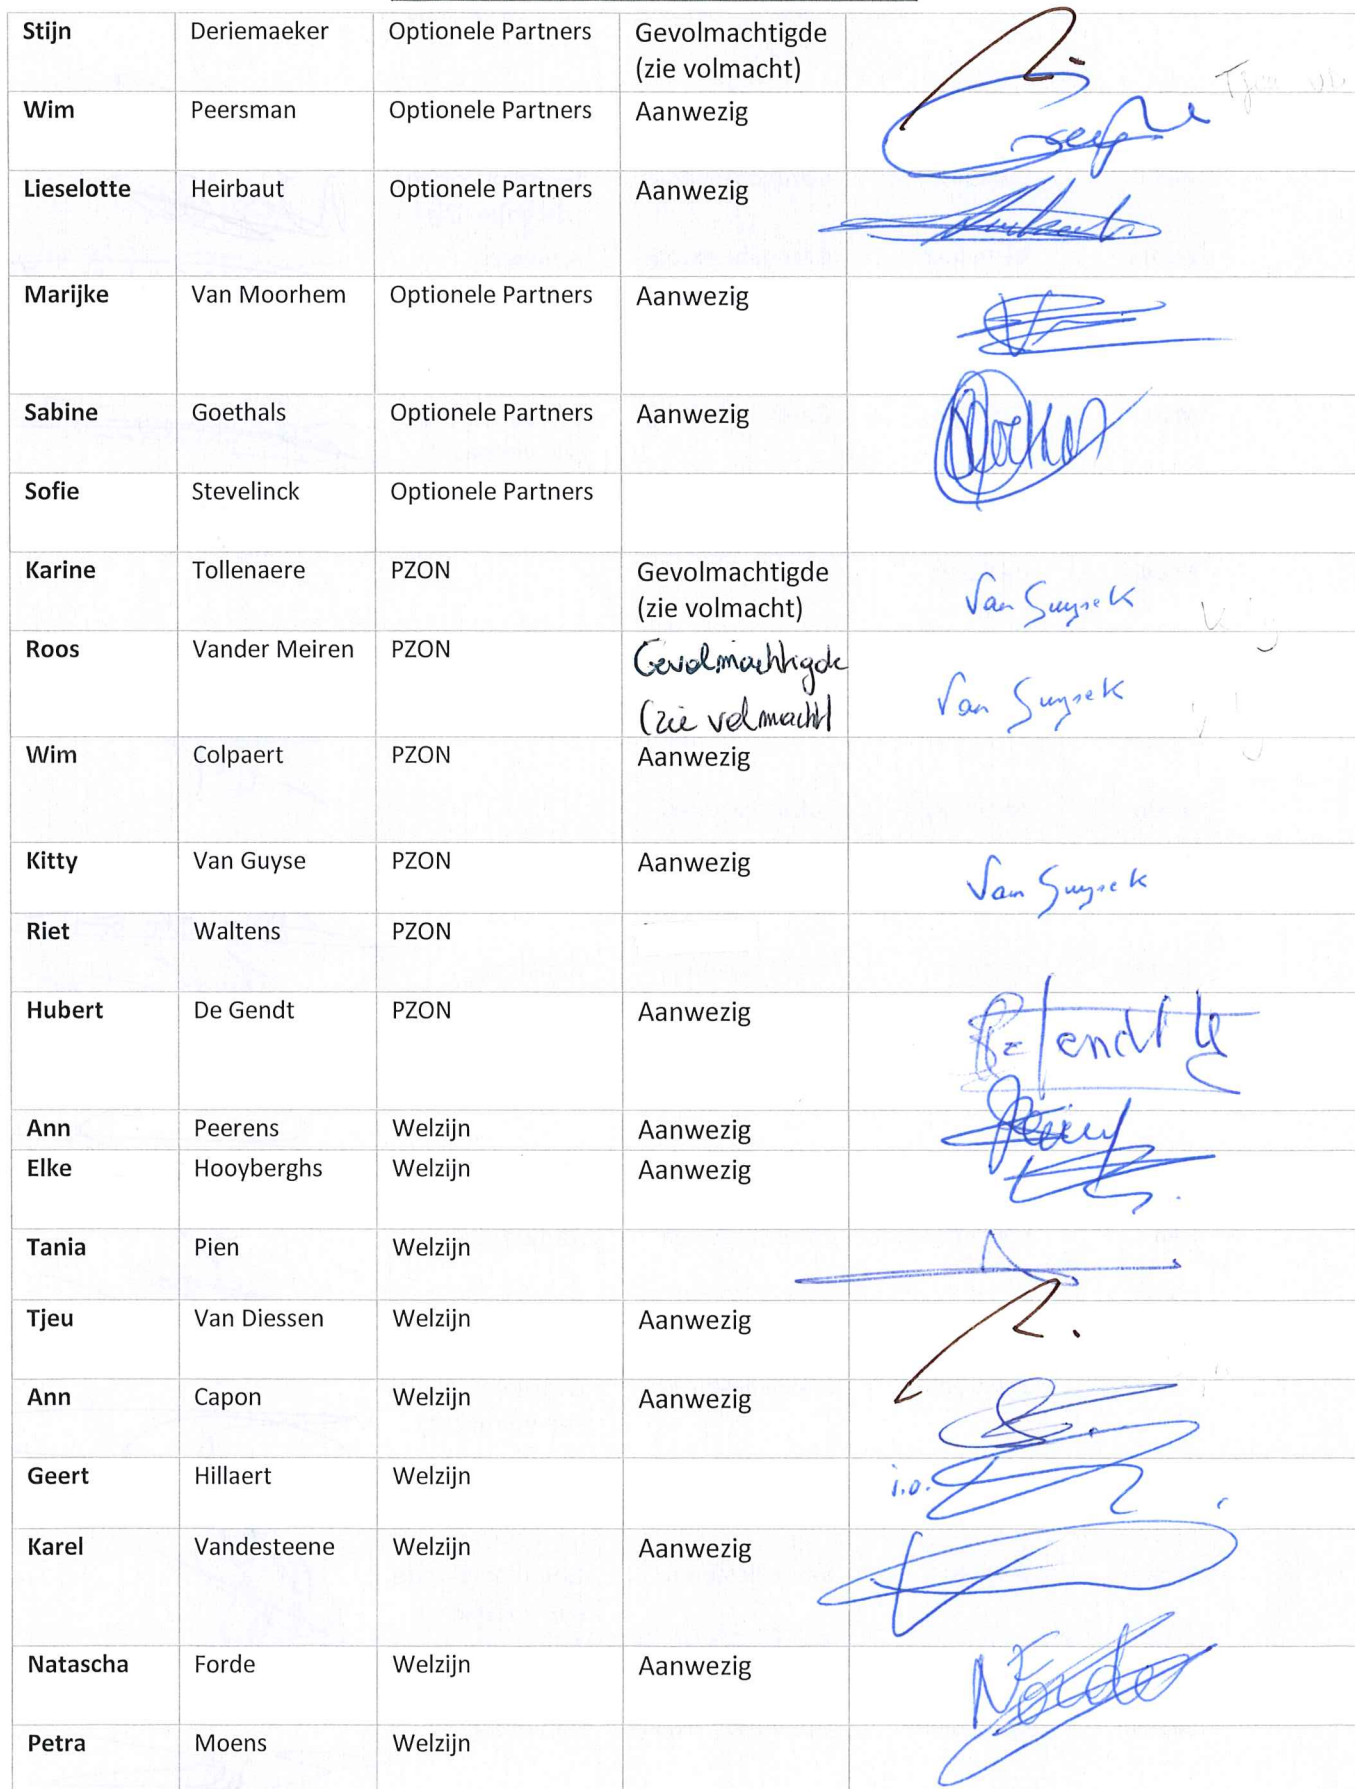 Stijn Deriemaeker Optionele Partners Gevolmachtigde
(zie volmacht)
Wim Peersman Optionele Partners Aanwezig
Lieselotte Heirbaut Optionele Partners Aanwezig
Marijke Van Moorhem Optionele Partners Aanwezig
Sabine Goethals Optionele Partners Aanwezig
Sofie Stevelinck Optionele Partners
Karine Tollenaere PZON Gevolmachtigde
(zie volmacht) Van Guyse K
Roos Vander Meiren PZON Gevolmachtigde
(zie volmacht) Van Guyse K
Wim Colpaert PZON Aanwezig
Kitty Van Guyse PZON Aanwezig Van Guyse K
Riet Waltens PZON
Hubert De Gendt PZON Aanwezig
Ann Peerens Welzijn Aanwezig
Elke Hooyberghs Welzijn Aanwezig
Tania Pien Welzijn
Tjeu Van Diessen Welzijn Aanwezig
Ann Capon Welzijn Aanwezig
Geert Hillaert Welzijn i.o.
Karel Vandesteene Welzijn Aanwezig
Natascha Forde Welzijn Aanwezig N Forde
Petra Moens Welzijn